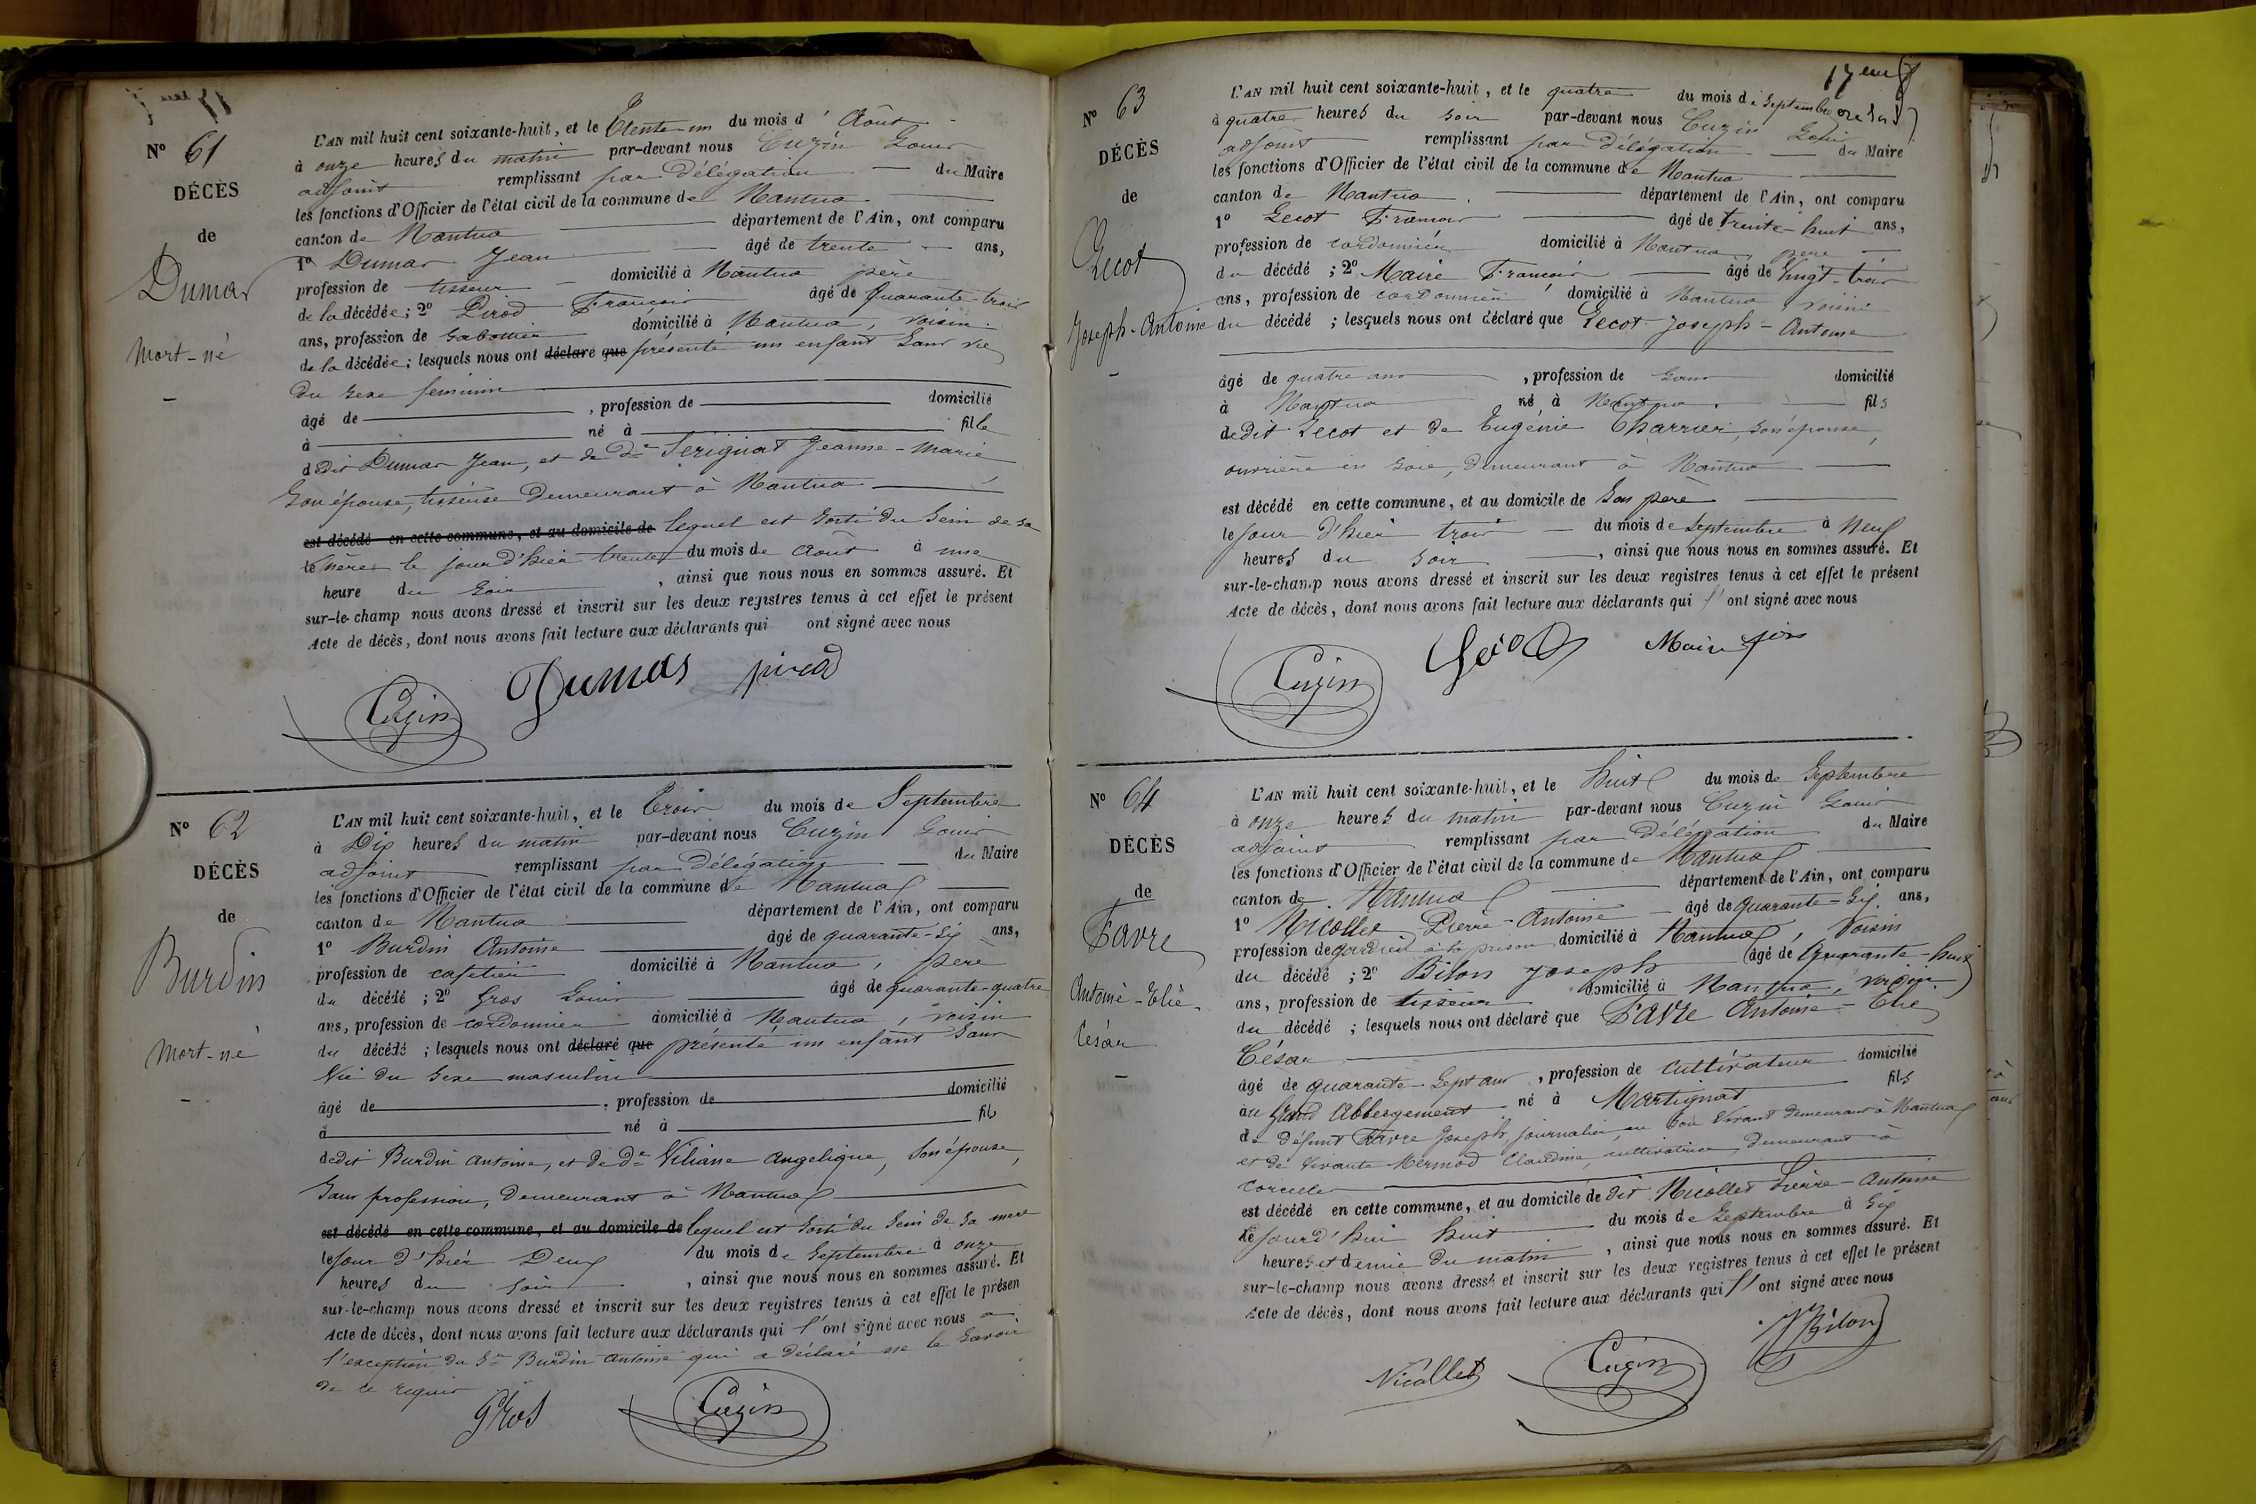 N° 61
DÉCÈS
de
Dumas
Mort-né
L'AN mil huit cent soixante-huit, et le Trente-un du mois d'Août
à onze heures du matin par-devant nous Cuzin Louis
adjoint remplissant par délégation du Maire
les fonctions d'Officier de l'état civil de la commune de Nantua
canton de Nantua département de l'Ain, ont comparu
1° Dumas Jean âgé de trente ans,
profession de tisseur domicilié à Nantua père
de la décédée; 2° Pirod François âgé de quarante-trois
ans, profession de sabottier domicilié à Nantua, voisin
de la décédée; lesquels nous ont déclaré que présenté un enfant sans vie
du sexe féminin
âgé de , profession de domicilié
à né à fille
dudit Dumas Jean, et de de Sérignat Jeanne-Marie
son épouse, tisseuse demeurant à Nantua
est décédé en cette commune, et au domicile de lequel est sorti du sein de sa
le mère le jour d'hier trente du mois de Août à une
heure du soir , ainsi que nous nous en sommes assuré. Et
sur-le-champ nous avons dressé et inscrit sur les deux registres tenus à cet effet le présent
Acte de décès, dont nous avons fait lecture aux déclarants qui ont signé avec nous
Dumas pirod
Cuzin
N° 62
DÉCÈS
de
Burdin
Mort-né
L'AN mil huit cent soixante-huit, et le Trois du mois de Septembre
à Dix heures du matin par-devant nous Cuzin Louis
adjoint remplissant par délégation du Maire
les fonctions d'Officier de l'état civil de la commune de Nantua
canton de Nantua département de l'Ain, ont comparu
1° Burdin Antoine âgé de quarante-six ans,
profession de cafetier domicilié à Nantua, père
du décédé; 2° Gros Louis âgé de quarante-quatre
ans, profession de cordonnier domicilié à Nantua, voisin
du décédé; lesquels nous ont déclaré que présenté un enfant sans
vie du sexe masculin
âgé de , profession de domicilié
à né à fils
dudit Burdin Antoine, et de de Viliane Angélique, son épouse,
sans profession, demeurant à Nantua
est décédé en cette commune, et au domicile de lequel est sorti du sein de sa mère
le jour d'hier Deux du mois de Septembre à onze
heures du soir , ainsi que nous nous en sommes assuré. Et
sur-le-champ nous avons dressé et inscrit sur les deux registres tenus à cet effet le présen
Acte de décès, dont nous avons fait lecture aux déclarants qui l'ont signé avec nous à
l'exception du Sr Burdin Antoine qui a déclaré ne le savoir
de ce requis
Gros Cuzin
17eme
N° 63
DÉCÈS
de
Lecot
Joseph-Antoine
L'AN mil huit cent soixante-huit, et le quatre du mois de Septembre
à quatre heures du soir par-devant nous Cuzin Louis
adjoint remplissant par délégation du Maire
les fonctions d'Officier de l'état civil de la commune de Nantua
canton de Nantua département de l'Ain, ont comparu
1° Lecot François âgé de trente-huit ans,
profession de cordonnier domicilié à Nantua, père
du décédé; 2° Maire François âgé de Vingt-trois
ans, profession de cordonnier domicilié à Nantua voisin
du décédé; lesquels nous ont déclaré que Lecot Joseph-Antoine
âgé de quatre ans , profession de sans domicilié
à Nantua né à Nantua fils
dudit Lecot et de Eugénie Charrier, son épouse,
ouvrière en soie, demeurant à Nantua
est décédé en cette commune, et au domicile de son père
le jour d'hier trois du mois de Septembre à Neuf
heures du soir , ainsi que nous nous en sommes assuré. Et
sur-le-champ nous avons dressé et inscrit sur les deux registres tenus à cet effet le présent
Acte de décès, dont nous avons fait lecture aux déclarants qui l'ont signé avec nous
Cuzin Maire
N° 64
DÉCÈS
de
Favre
Antoine-Elie
César
L'AN mil huit cent soixante-huit, et le huit du mois de Septembre
à onze heures du matin par-devant nous Cuzin Louis
adjoint remplissant par délégation du Maire
les fonctions d'Officier de l'état civil de la commune de Nantua
canton de Nantua département de l'Ain, ont comparu
1° Nicollet Pierre-Antoine âgé de quarante-six ans,
profession de gardien à la prison domicilié à Nantua, Voisin
du décédé; 2° Bilon Joseph âgé de quarante-huit
ans, profession de tisseur domicilié à Nantua, voisin
du décédé; lesquels nous ont déclaré que Favre Antoine-Elie
César
âgé de quarante-sept ans , profession de cultivateur domicilié
au Grand Abbergement né à Martignat fils
de défunt Favre Joseph, journalier, en son vivant demeurant à Nantua
et de vivante Mermod Claudine, cultivatrice, demeurant à
Corcelle
est décédé en cette commune, et au domicile de dit Nicollet Pierre-Antoine
le jour d'hui huit du mois de Septembre à Six
heures et demie du matin , ainsi que nous nous en sommes assuré. Et
sur-le-champ nous avons dressé et inscrit sur les deux registres tenus à cet effet le présent
Acte de décès, dont nous avons fait lecture aux déclarants qui l'ont signé avec nous
Nicollet Cuzin Bilon